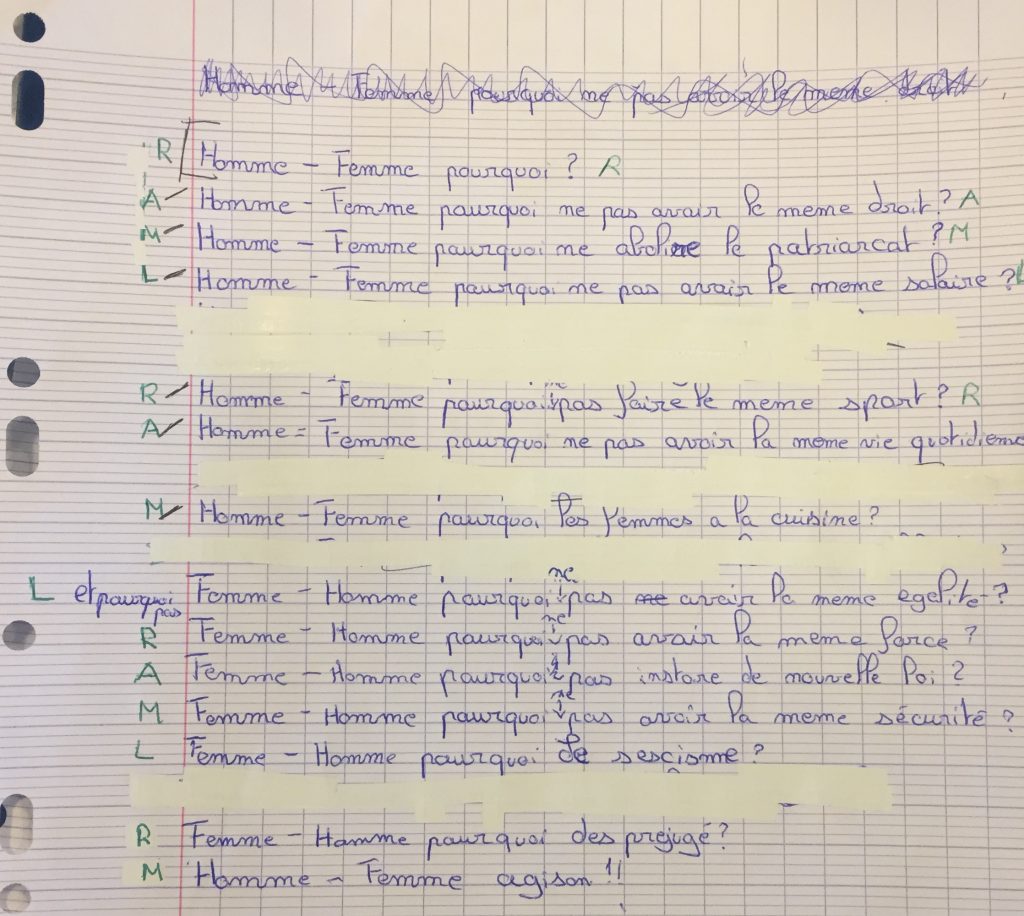 Homme - Femme pourquoi ne pas le meme
R Homme - Femme pourquoi ? R
A Homme - Femme pourquoi ne pas avoir le meme droit ? A
M Homme - Femme pourquoi ne abolire le patriarcat ? M
L Homme - Femme pourquoi ne pas avoir le meme salaire ? L
R Homme - Femme pourquoi ne pas faire le meme sport ? R
A Homme = Femme pourquoi ne pas avoir la meme vie quotidiene
M Homme - Femme pourquoi les femmes a la cuisine ?
L et pourquoi pas Femme - Homme pourquoi ne pas avoir la meme egelite ?
R Femme - Homme pourquoi ne pas avoir la meme force ?
A Femme - Homme pourquoi pas instore de nouvelle loi ?
M Femme - Homme pourquoi ne pas avoir la meme sécurité ?
L Femme - Homme pourquoi le sescisme ?
R Femme - Homme pourquoi des prejugé ?
M Homme - Femme agison !!